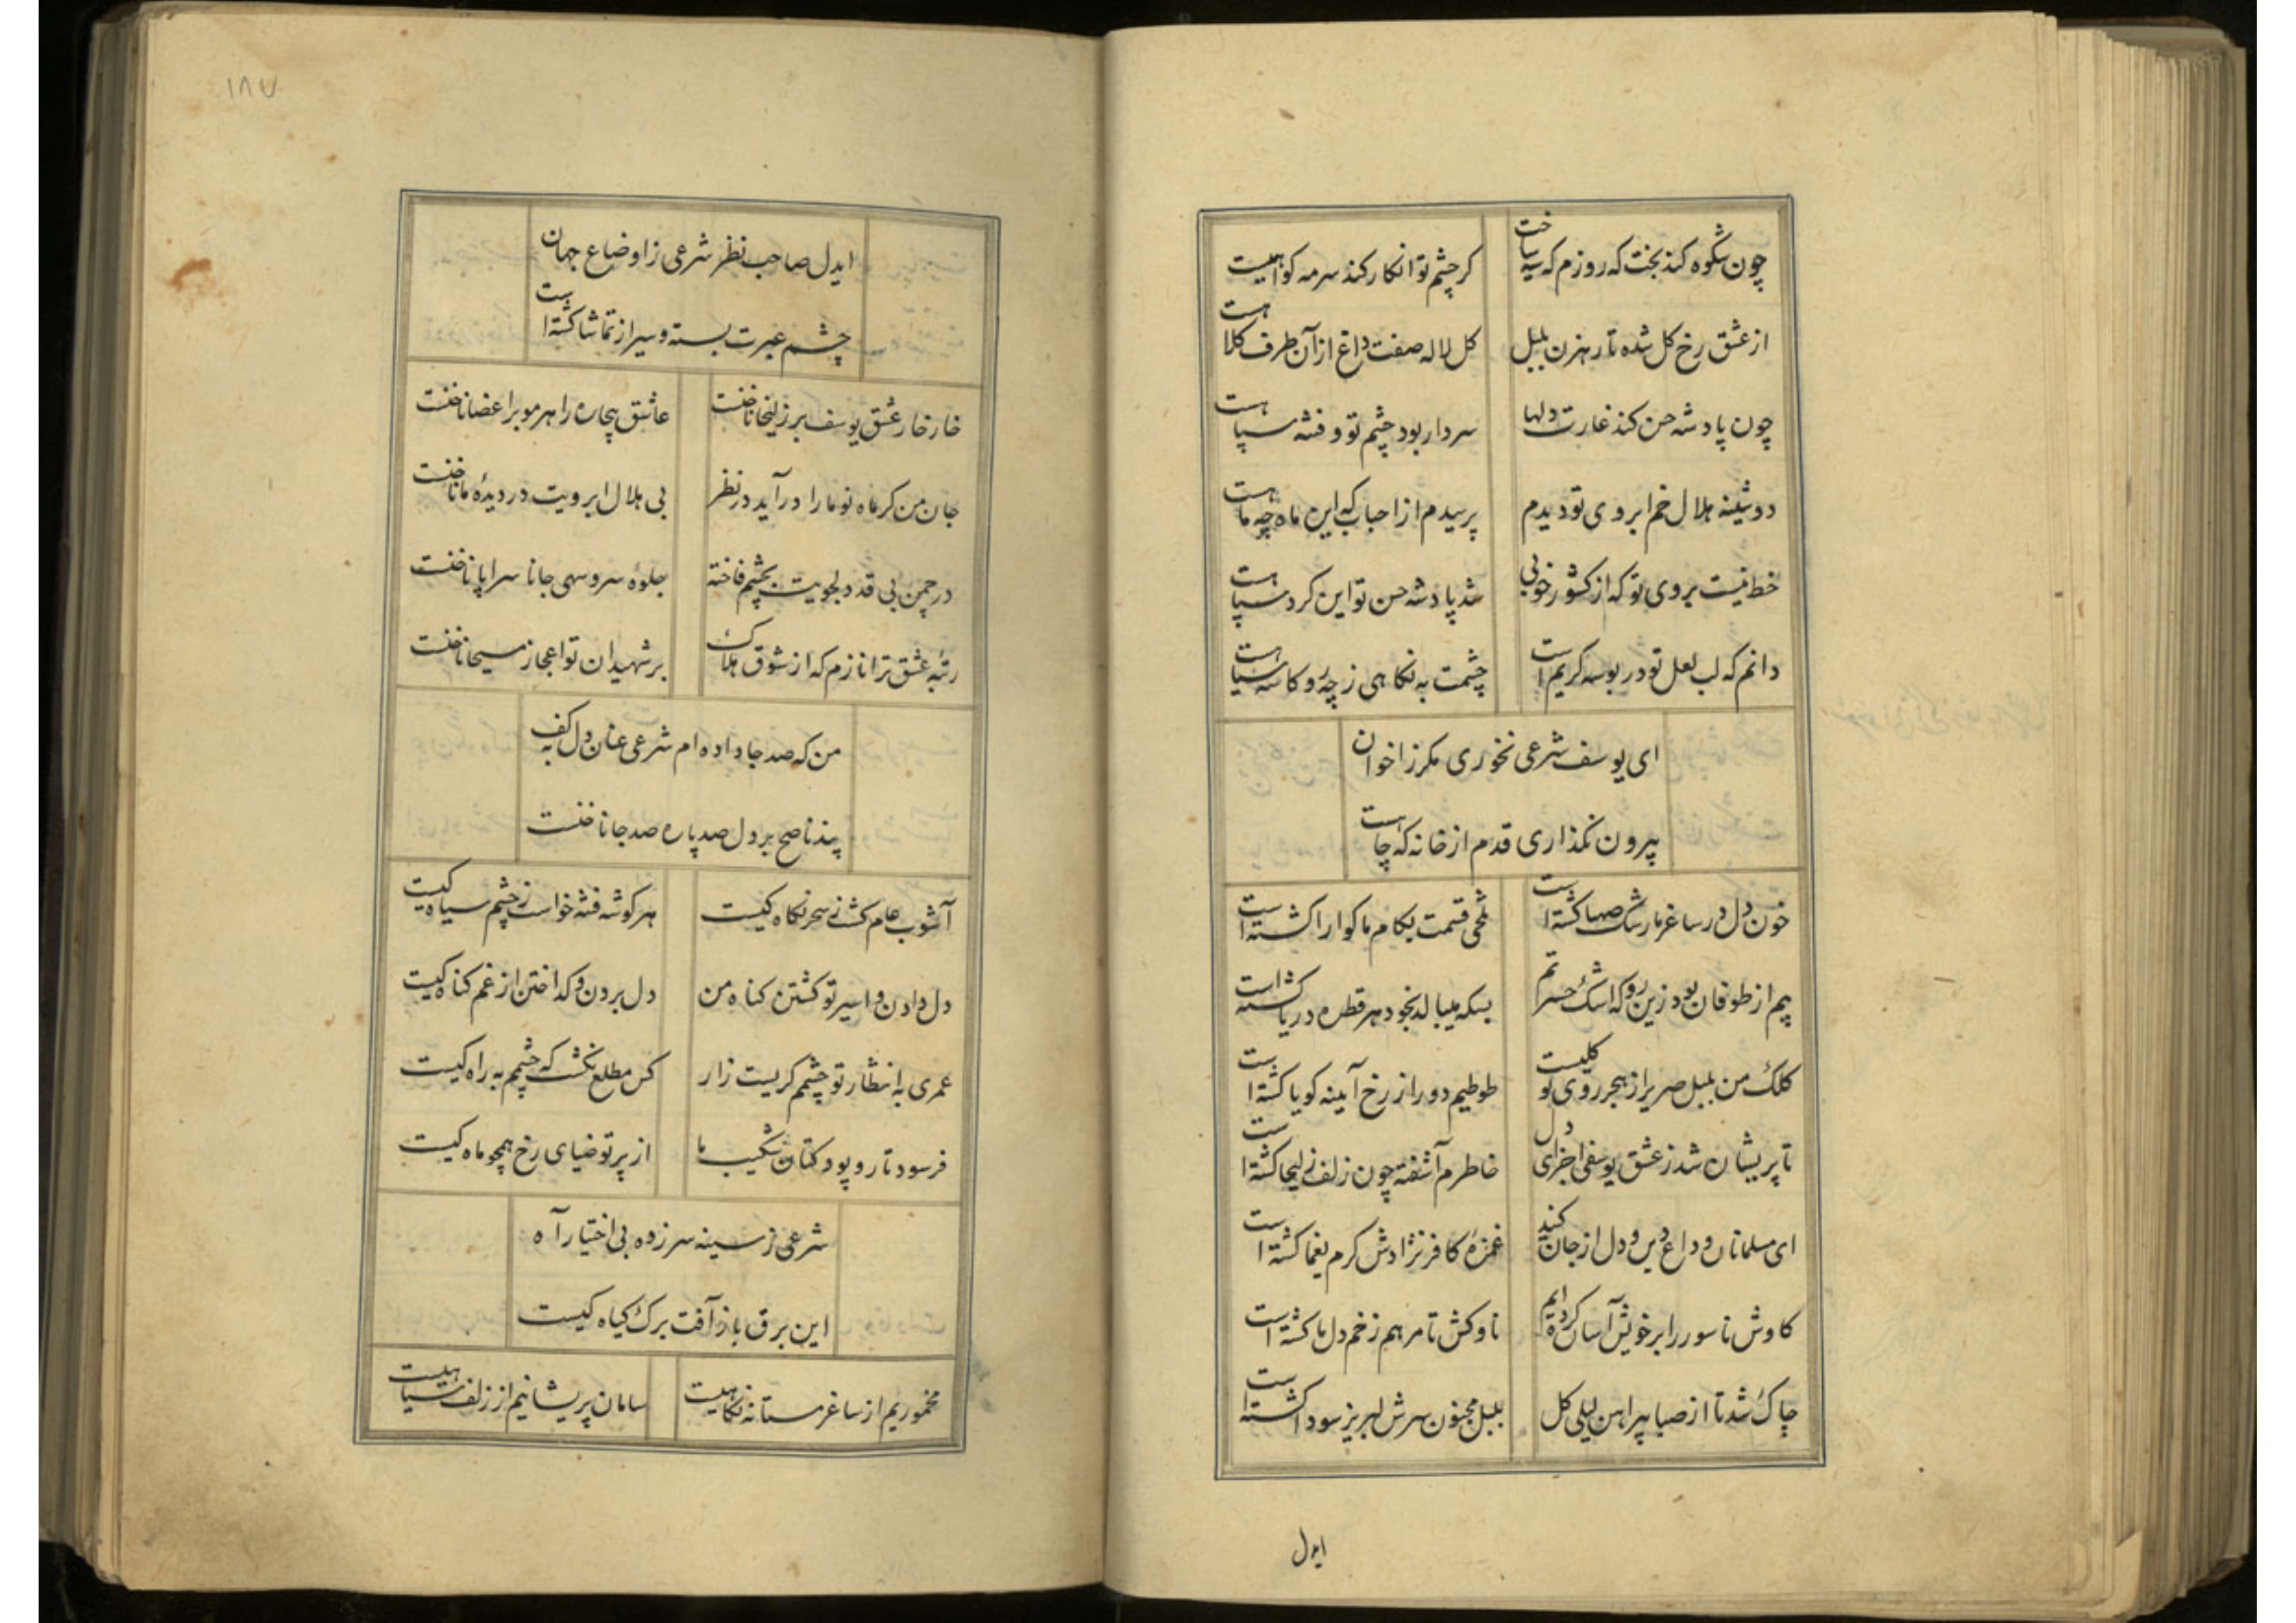 چون شکوه کند بخت که روزم که سیه ساخت
کر چشم تو انکار کند سرمه کواهیست
از عشق رخ کل شده تا رهزن بلبل
کل لاله صفت داغ از آن طرف کلاهست
چون پادشه حسن کند غارت دلها
سردار بود چشم تو و فتنه سپاهست
دوشینه هلال خم ابروی تو دیدم
پرسیدم از احباب که این ماه چه ماهست
خط نیست بروی تو که از کشور خوبی
شد پادشه حسن تو این کرد سپاهست
دانم که لب لعل تو در بوسه کریم است
چشمت به نکاهی ز چه رو کاسه سیاهست
ای یوسف شرعی نخوری مکر ز اخوان
بیرون نکذاری قدم از خانه که چاهست
خون دل در ساغر ما رشک صهبا کشته است
تلخی قسمت بکام ما کوارا کشته است
بیم از طوفان بود زین رو که اشک حسرتم
بسکه میبالد بخود هر قطره دریا کشته است
کلک من بلبل صریر از هجر روی تو کلیست
طوطیم دور از رخ آیینه کویا کشته است
تا پریشان شد ز عشق یوسفی اجزای دل
خاطرم آشفته چون زلف زلیخا کشته است
ای مسلمانان وداع دین و دل از جان کنید
غمزه کافر نژادش کرم یغما کشته است
کاوش ناسور را بر خویش آسان کرده‌ایم
ناوکش تا مرهم زخم دل ما کشته است
چاک شد تا از صبا پیراهن لیلی کل
بلبل مجنون سرش لبریز سودا کشته است
ایدل
۱۸۷
ایدل صاحب نظر شرعی ز اوضاع جهان
چشم عبرت بسته و سیر از تماشا کشته است
خار خار عشق یوسف بر زلیخا ناخنست
عاشق بیچاره را هر مو بر اعضا ناخنست
جان من کر ماه نو ما را در آید در نظر
بی هلال ابرویت در دیده ما ناخنست
در چمن بی قد دلجویت بچشم فاخته
جلوه سرو سهی جانا سراپا ناخنست
رتبه عشق ترا نازم که از شوق هلاک
بر شهیدان تو اعجاز مسیحا ناخنست
من که صد جا داده‌ام شرعی عنان دل به کف
پند ناصح بر دل صد پاره صد جا ناخنست
آشوب عام کشنی ز سحر نکاه کیست
هر کوشه فتنه خواست ز چشم سیاه کیست
دل دادن و اسیر تو کشتن کناه من
دل بردن و کداختن از غم کناه کیست
عمری به انتظار تو چشمم کریست زار
کس مطلع نکشت که چشمم به راه کیست
فرسود تار و پود کتان شکیب ما
از پرتو ضیای رخ همچو ماه کیست
شرعی ز سینه سر زده بی اختیار آه
این برق باز آفت برک کیاه کیست
مخموریم از ساغر مستانه نکاهیست
سامان پریشانیم از زلف سیاهیست